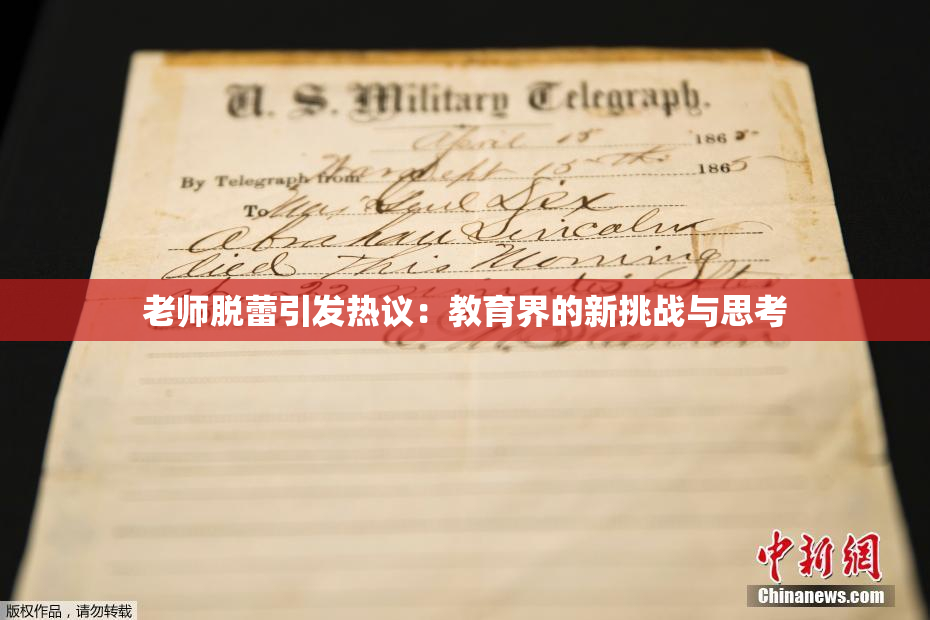 U. S. Military Telegraph.
April 15 1865
By Telegraph from War Dept 15th 1865
To Maj Genl Dix
Abraham Lincoln
died This Morning
22 minutes after
老师脱蕾引发热议：教育界的新挑战与思考
E. M. Stanton
中新网
Chinanews.com
版权作品，请勿转载